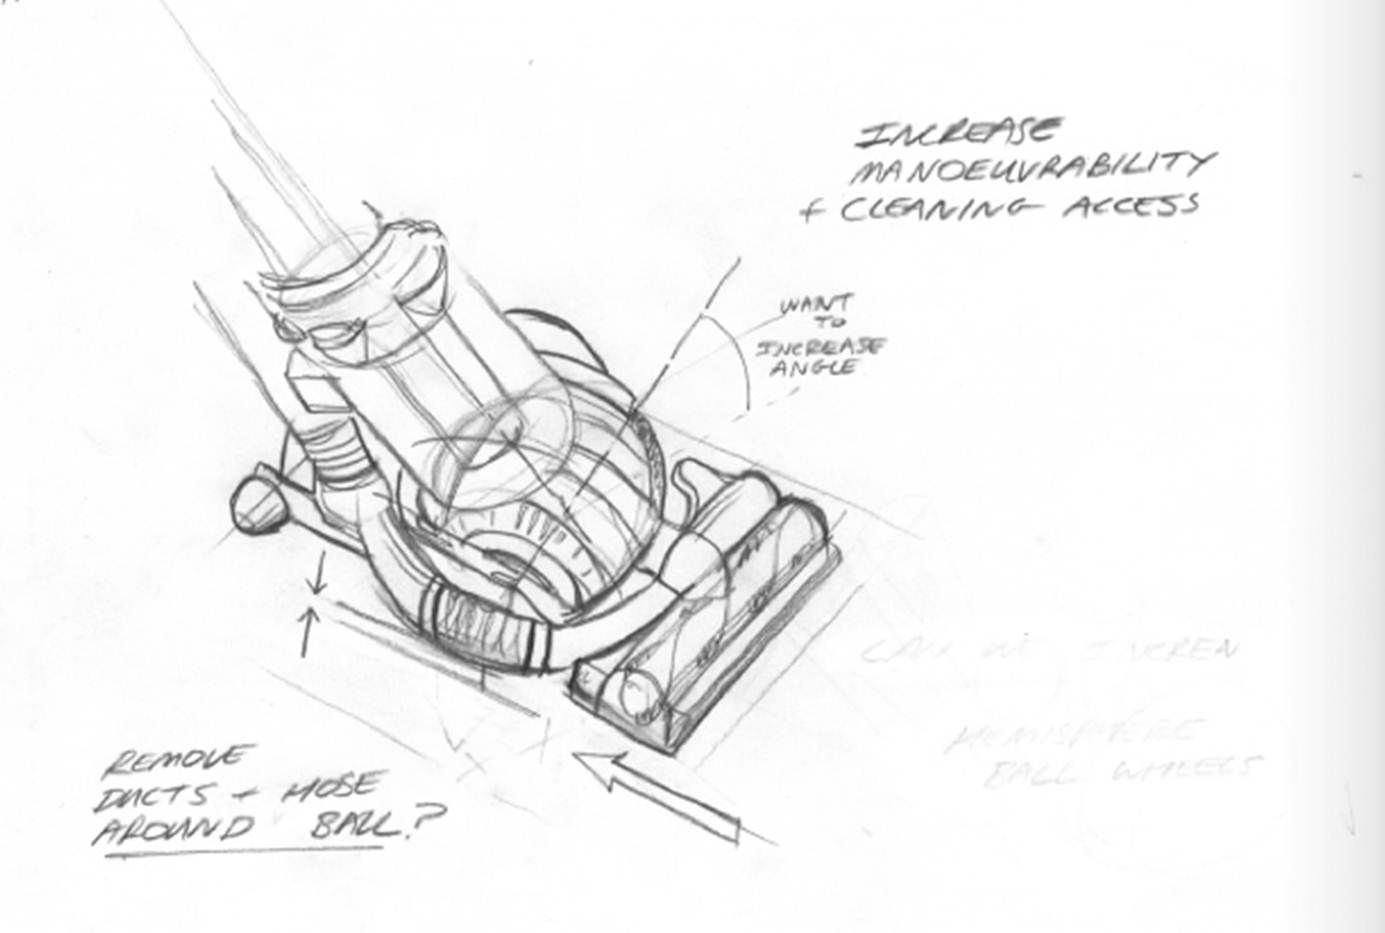 INCREASE
MANOEUVRABILITY
+ CLEANING ACCESS
WANT
TO
INCREASE
ANGLE
HEMISPHERE
BALL WHEELS
REMOVE
DUCTS + HOSE
AROUND BALL?